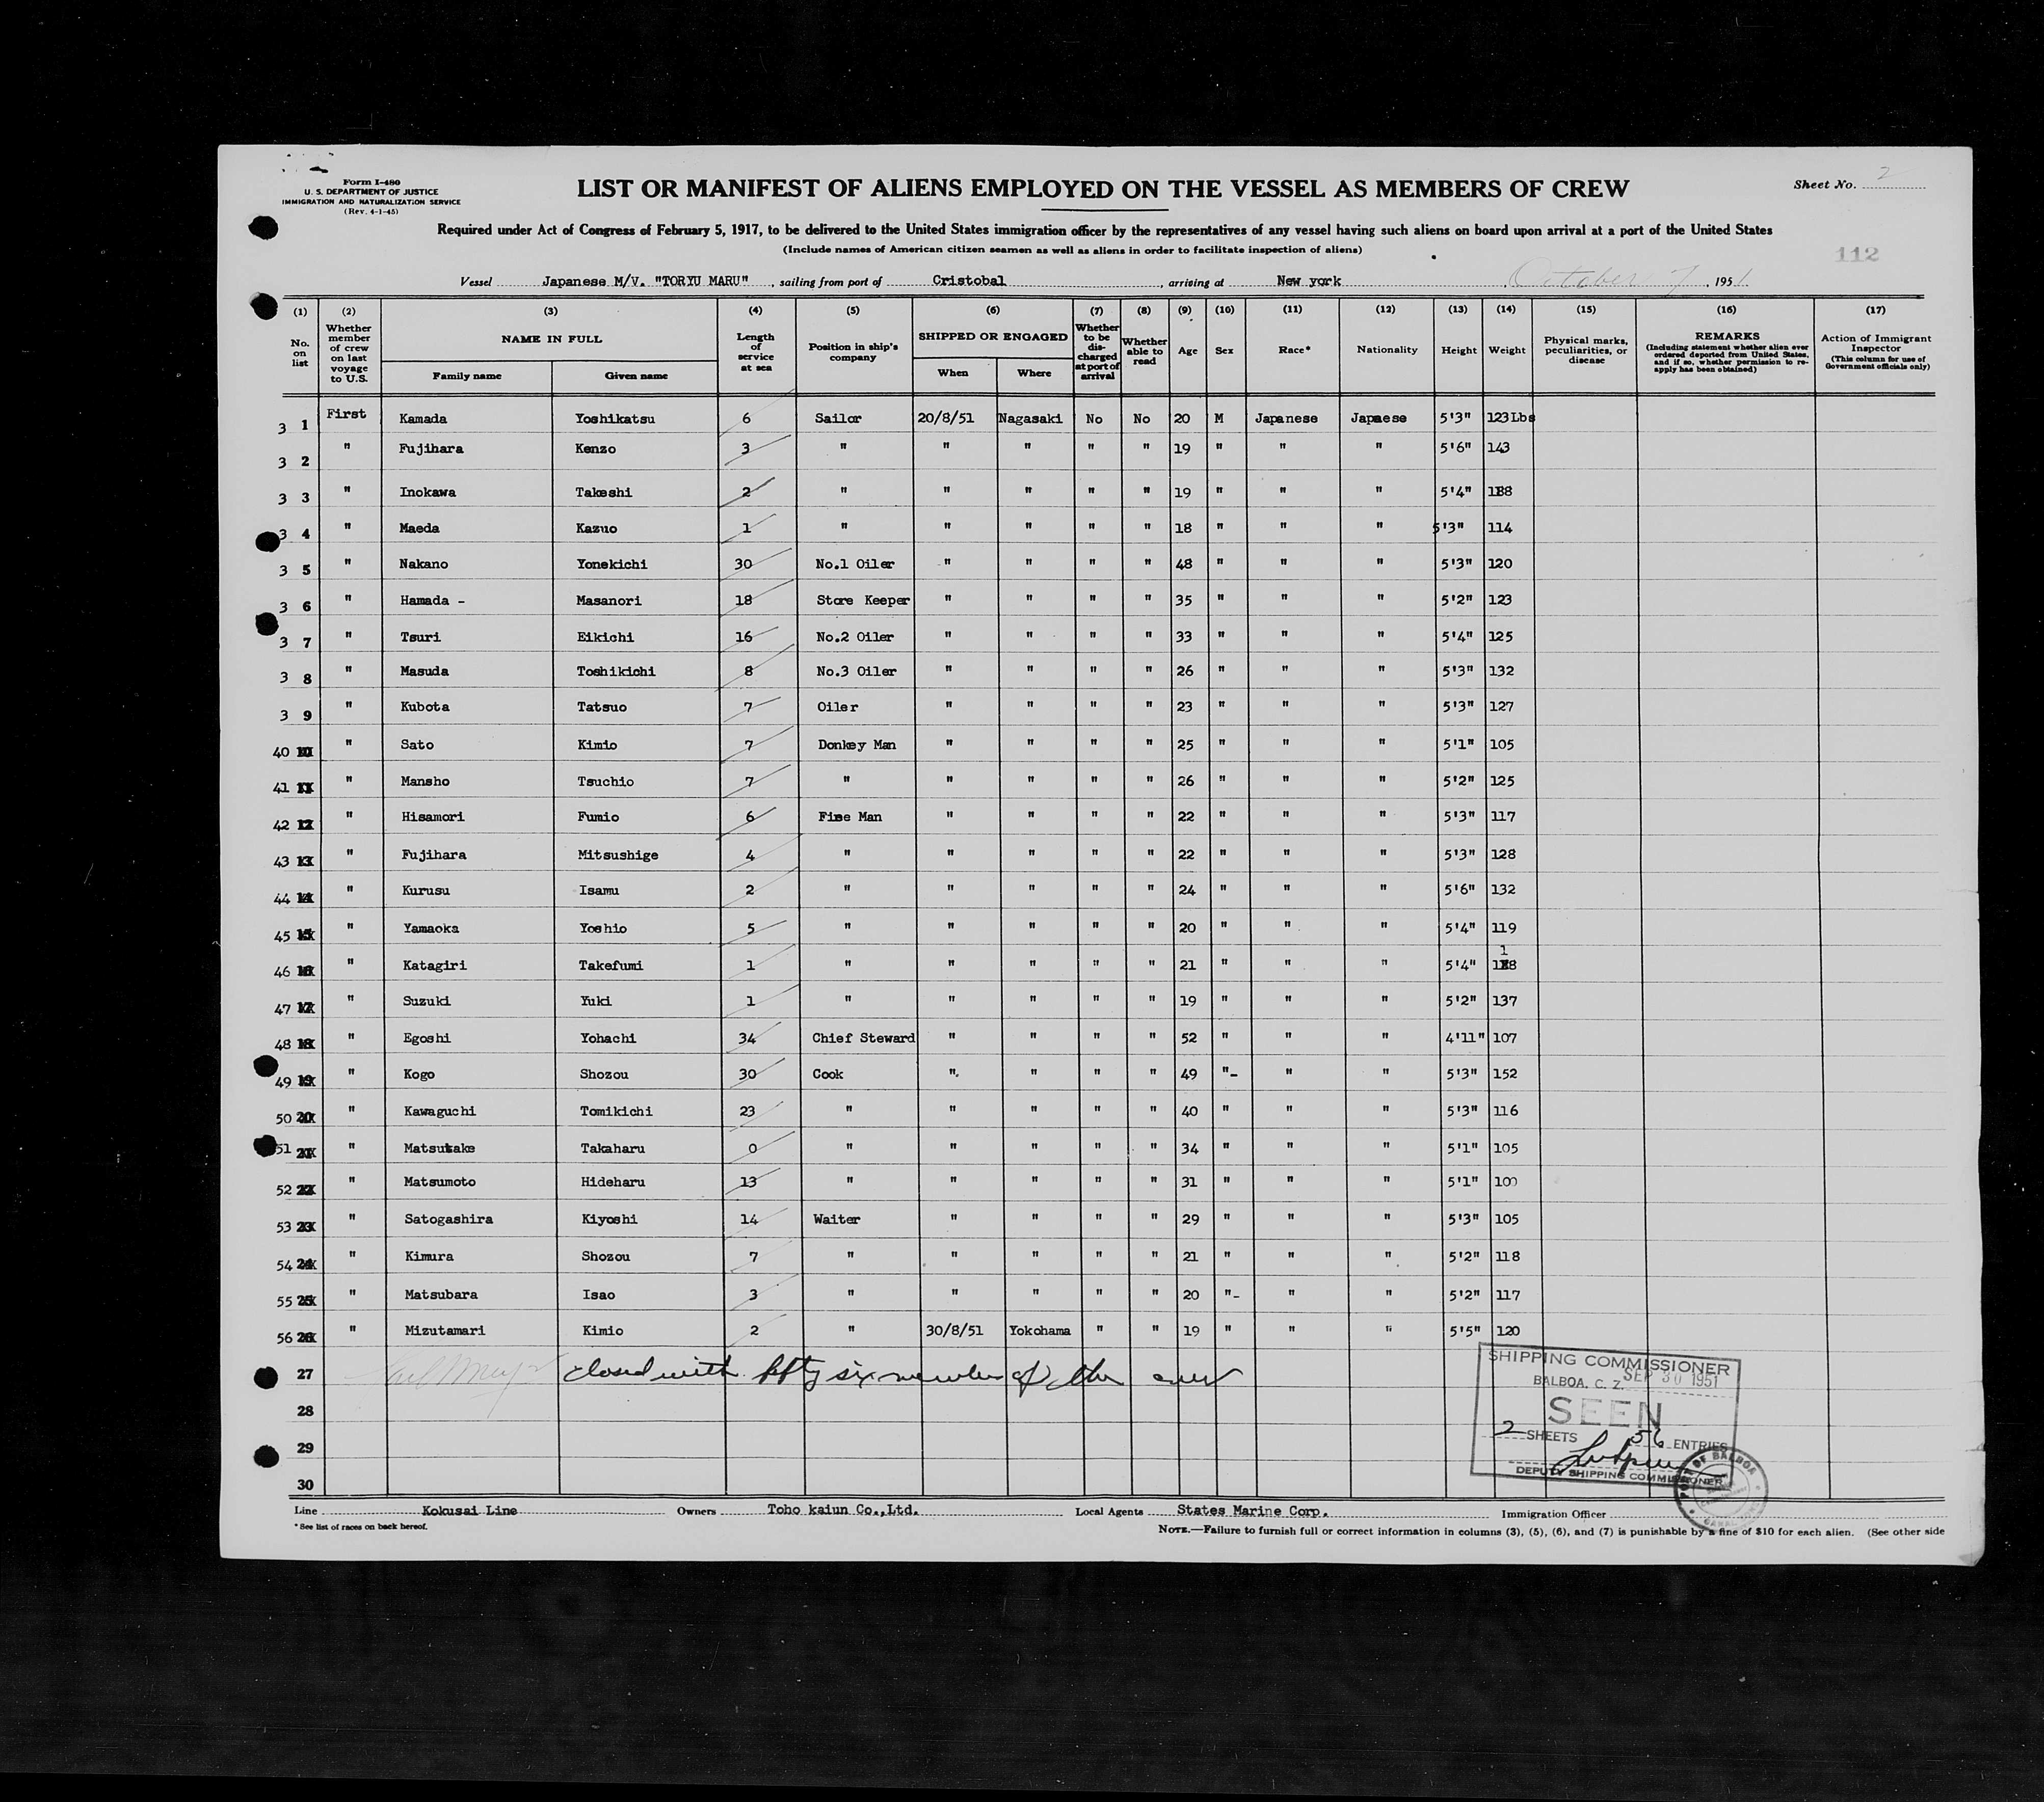 Form I-480
U. S. DEPARTMENT OF JUSTICE
IMMIGRATION AND NATURALIZATION SERVICE
(Rev. 4-1-45)
LIST OR MANIFEST OF ALIENS EMPLOYED ON THE VESSEL AS MEMBERS OF CREW
Sheet No. 2
Required under Act of Congress of February 5, 1917, to be delivered to the United States immigration officer by the representatives of any vessel having such aliens on board upon arrival at a port of the United States
(Include names of American citizen seamen as well as aliens in order to facilitate inspection of aliens)
112
Vessel Japanese M/V. "TORYU MARU" , sailing from port of Cristobal , arriving at New york October 7 , 1951
(1) (2) (3) (4) (5) (6) (7) (8) (9) (10) (11) (12) (13) (14) (15) (16) (17)
No. on list
Whether member of crew on last voyage to U.S.
NAME IN FULL
Family name Given name
Length of service at sea
Position in ship's company
SHIPPED OR ENGAGED
When Where
Whether to be discharged at port of arrival
Whether able to read
Age Sex Race* Nationality Height Weight
Physical marks, peculiarities, or disease
REMARKS
(Including statement whether alien ever ordered deported from United States, and if so, whether permission to reapply has been obtained)
Action of Immigrant Inspector
(This column for use of Government officials only)
3 1 First Kamada Yoshikatsu 6 Sailor 20/8/51 Nagasaki No No 20 M Japanese Japaese 5'3" 123Lbs
3 2 " Fujihara Kenzo 3 " " " " " 19 " " " 5'6" 143
3 3 " Inokawa Takeshi 2 " " " " " 19 " " " 5'4"
3 4 " Maeda Kazuo 1 " " " " " 18 " " " 5'3" 114
3 5 " Nakano Yonekichi 30 No.1 Oiler " " " " 48 " " " 5'3" 120
3 6 " Hamada - Masanori 18 Store Keeper " " " " 35 " " " 5'2" 123
3 7 " Tsuri Eikichi 16 No.2 Oiler " " " " 33 " " " 5'4" 125
3 8 " Masuda Toshikichi 8 No.3 Oiler " " " " 26 " " " 5'3" 132
3 9 " Kubota Tatsuo 7 Oiler " " " " 23 " " " 5'3" 127
40 10 " Sato Kimio 7 Donkey Man " " " " 25 " " " 5'1" 105
41 11 " Mansho Tsuchio 7 " " " " " 26 " " " 5'2" 125
42 12 " Hisamori Fumio 6 Fire Man " " " " 22 " " " 5'3" 117
43 13 " Fujihara Mitsushige 4 " " " " " 22 " " " 5'3" 128
44 14 " Kurusu Isamu 2 " " " " " 24 " " " 5'6" 132
45 15 " Yamaoka Yoshio 5 " " " " " 20 " " " 5'4" 119
46 16 " Katagiri Takefumi 1 " " " " " 21 " " " 5'4" 118
47 17 " Suzuki Yuki 1 " " " " " 19 " " " 5'2" 137
48 18 " Egoshi Yohachi 34 Chief Steward " " " " 52 " " " 4'11" 107
49 19 " Kogo Shozou 30 Cook " " " " 49 "- " " 5'3" 152
50 20 " Kawaguchi Tomikichi 23 " " " " " 40 " " " 5'3" 116
51 21 " Matsutake Takaharu 0 " " " " " 34 " " " 5'1" 105
52 22 " Matsumoto Hideharu 13 " " " " " 31 " " " 5'1" 100
53 23 " Satogashira Kiyoshi 14 Waiter " " " " 29 " " " 5'3" 105
54 24 " Kimura Shozou 7 " " " " " 21 " " " 5'2" 118
55 25 " Matsubara Isao 3 " " " " " 20 "- " " 5'2" 117
56 26 " Mizutamari Kimio 2 " 30/8/51 Yokohama " " 19 " " " 5'5" 120
27 closed with fifty six member of the crew
28
29
30
SHIPPING COMMISSIONER
BALBOA, C. Z. SEP 30 1951
SEEN
2 SHEETS 56 ENTRIES
DEPUTY SHIPPING COMMISSIONER
PORT OF BALBOA
Line Kokusai Line Owners Toho kaiun Co.,Ltd. Local Agents States Marine Corp. Immigration Officer
* See list of races on back hereof.
NOTE.—Failure to furnish full or correct information in columns (3), (5), (6), and (7) is punishable by a fine of $10 for each alien. (See other side